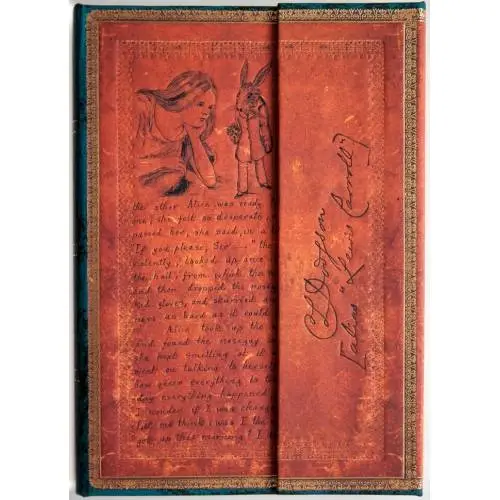 the other. Alice was ready
one; she felt so desperate,
passed her, she said, in a
"If you please, Sir—" the
violently, looked up once
the hall, from which the
and then dropped the noseg
kid gloves, and skurried
ness as hard as it could
Alice took up the
and found the nosegay
she kept smelling at it
went on talking to herself
how queer everything is to
day everything happened
I wonder if I was chang
let me think: was I the
got up this morning? I
C L Dodgson
[alias "Lewis Carroll"]